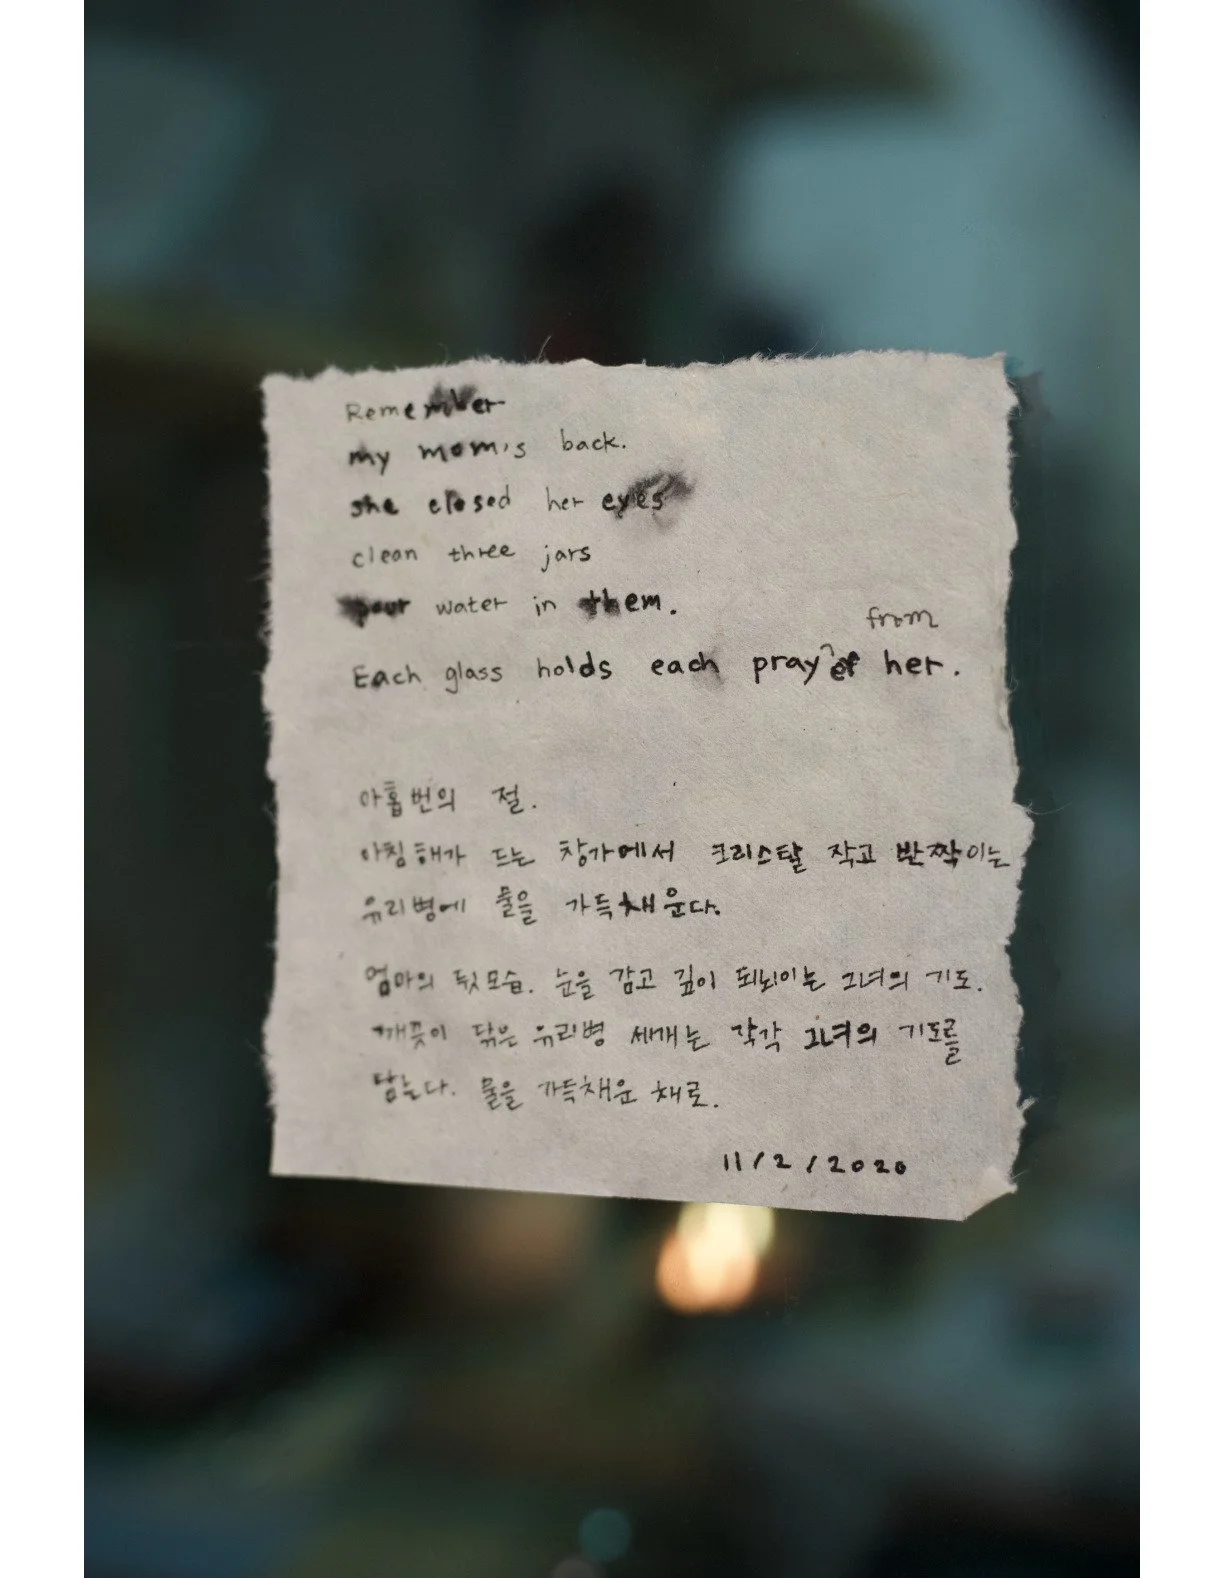 Remember
my mom's back.
she closed her eyes
clean three jars
pour water in them.
from
Each glass holds each pray^of her.
아홉번의 절.
아침해가 뜨는 창가에서 크리스탈 작고 반짝이는
유리병에 물을 가득채운다.
엄마의 뒷모습. 눈을 감고 깊이 되뇌이는 그녀의 기도.
깨끗이 닦은 유리병 세개는 각각 그녀의 기도를
담는다. 물을 가득채운 채로.
11/2/2020